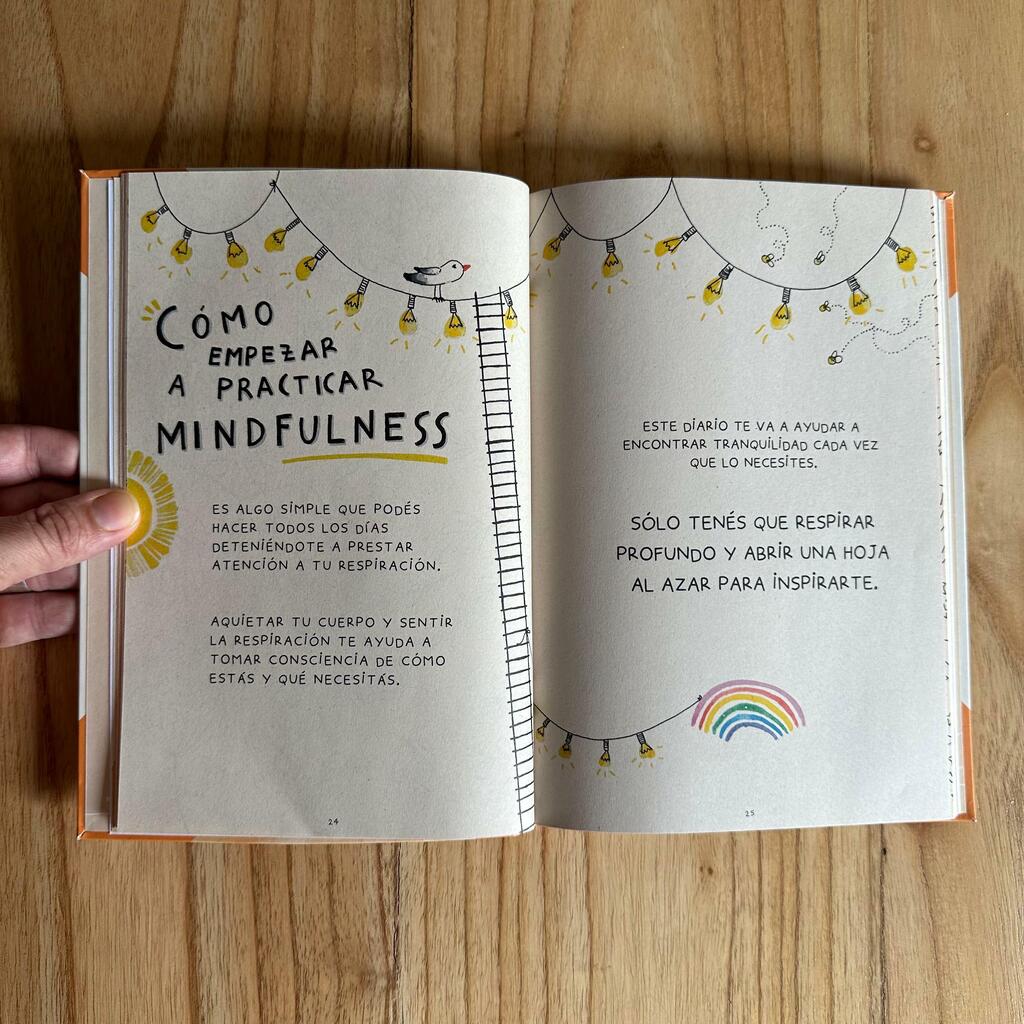 CÓMO
EMPEZAR
A PRACTICAR
MINDFULNESS
ES ALGO SIMPLE QUE PODÉS
HACER TODOS LOS DÍAS
DETENIÉNDOTE A PRESTAR
ATENCIÓN A TU RESPIRACIÓN.
AQUIETAR TU CUERPO Y SENTIR
LA RESPIRACIÓN TE AYUDA A
TOMAR CONSCIENCIA DE CÓMO
ESTÁS Y QUÉ NECESITÁS.
24
ESTE DIARIO TE VA A AYUDAR A
ENCONTRAR TRANQUILIDAD CADA VEZ
QUE LO NECESITES.
SÓLO TENÉS QUE RESPIRAR
PROFUNDO Y ABRIR UNA HOJA
AL AZAR PARA INSPIRARTE.
25